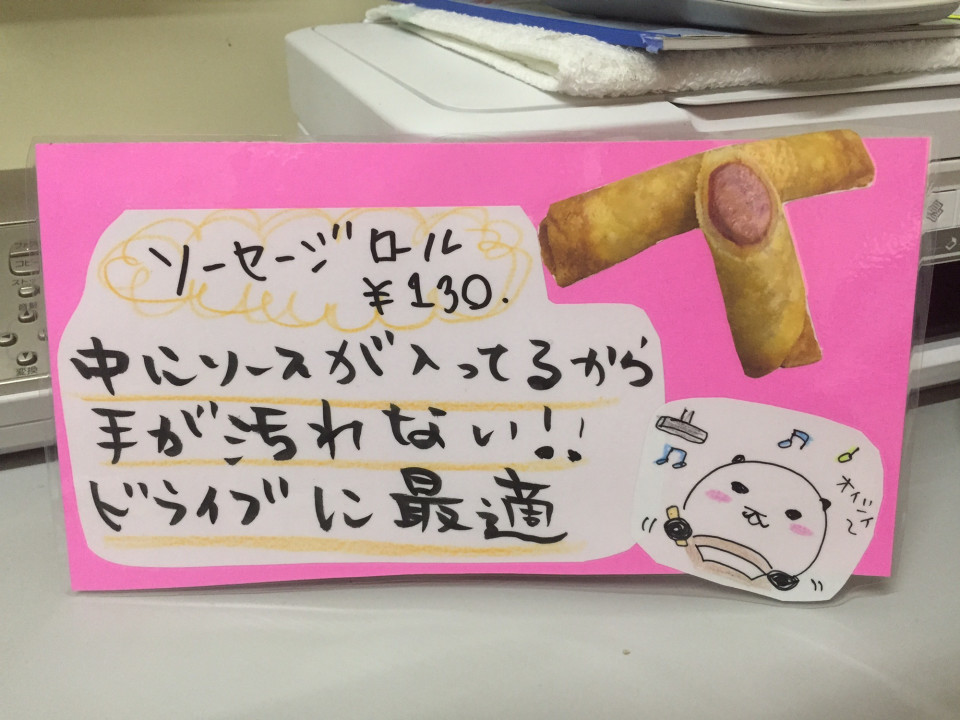 ソーセージロール
¥130.
中にソースが入ってるから
手が汚れない!!
ドライブに最適
オイシイ〜